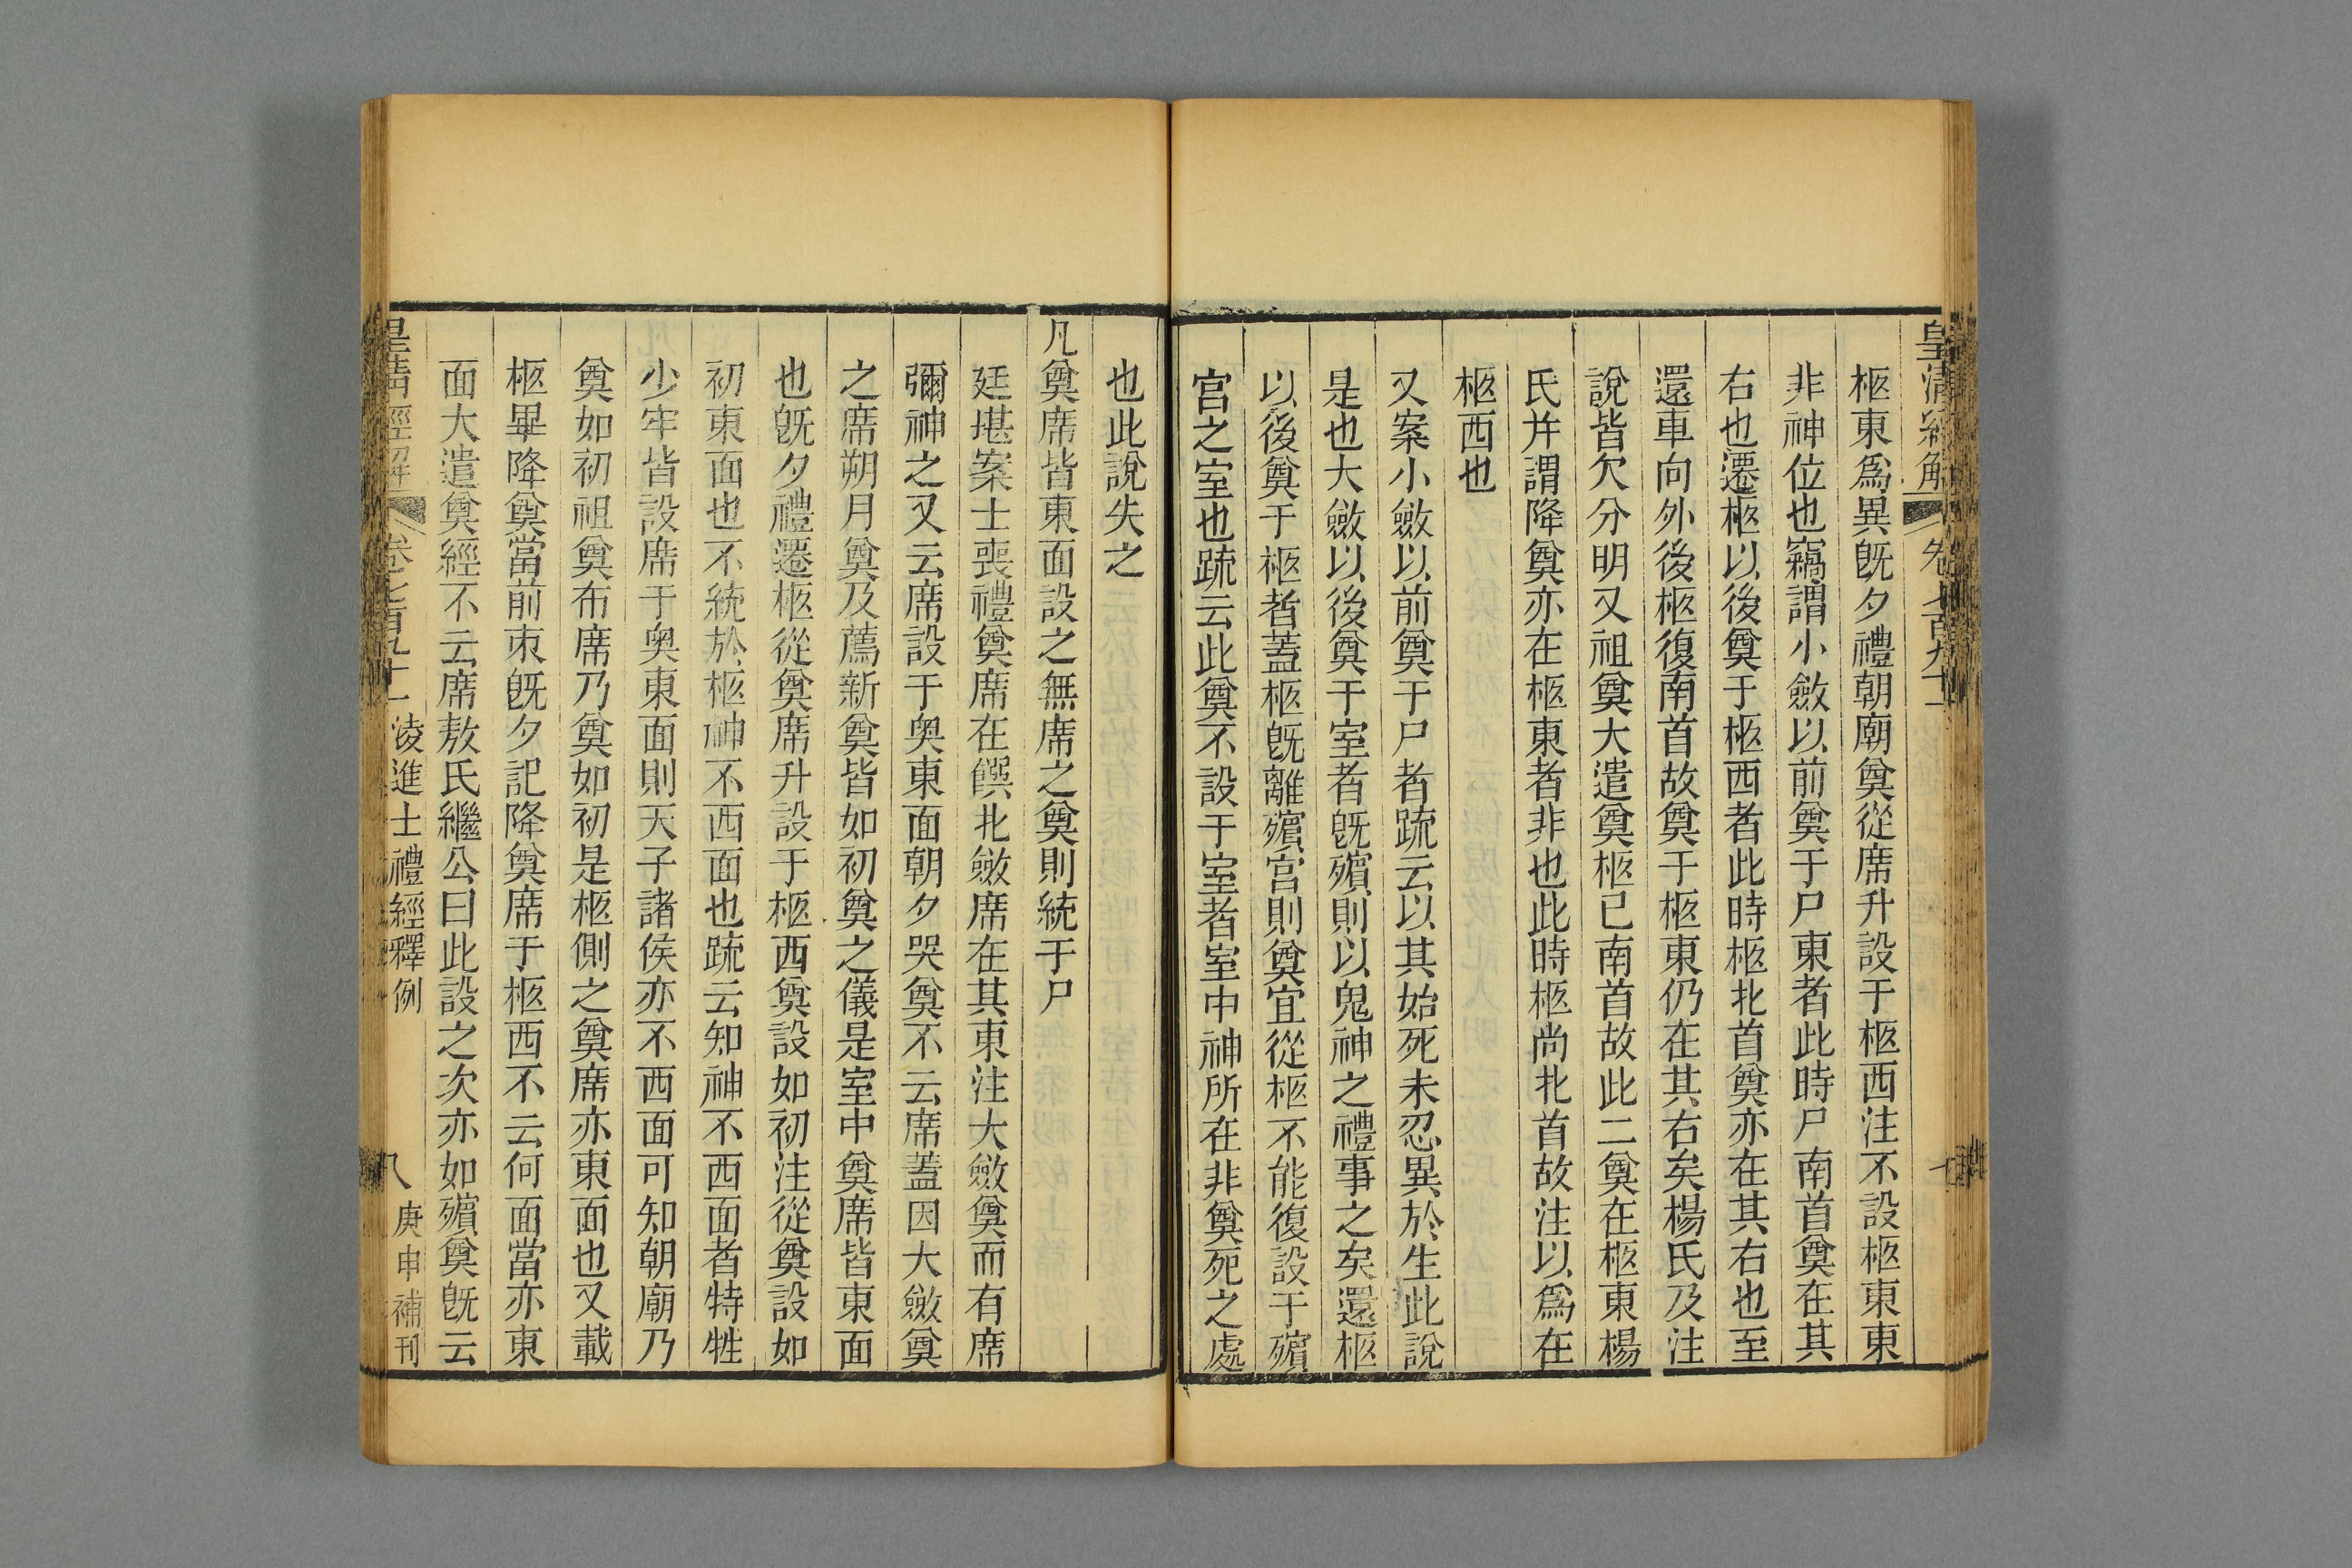 皇清經解 卷七百九十一 七
柩東爲異旣夕禮朝廟奠從席升設于柩西注不設柩東東
非神位也竊謂小斂以前奠于尸東者此時尸南首奠在其
右也遷柩以後奠于柩西者此時柩北首奠亦在其右也至
還車向外後柩復南首故奠于柩東仍在其右矣楊氏及注
說皆欠分明又祖奠大遣奠柩已南首故此二奠在柩東楊
氏幷謂降奠亦在柩東者非也此時柩尚北首故注以爲在
柩西也
又案小斂以前奠于尸者疏云以其始死未忍異於生此說
是也大斂以後奠于室者旣殯則以鬼神之禮事之矣還柩
以後奠于柩者蓋柩旣離殯宮則奠宜從柩不能復設于殯
宮之室也疏云此奠不設于室者室中神所在非奠死之處
也此說失之
凡奠席皆東面設之無席之奠則統于尸
廷堪案士喪禮奠席在饌北斂席在其東注大斂奠而有席
彌神之又云席設于奥東面朝夕哭奠不云席蓋因大斂奠
之席朔月奠及薦新奠皆如初奠之儀是室中奠席皆東面
也旣夕禮遷柩從奠席升設于柩西奠設如初注從奠設如
初東面也不統於柩神不西面也疏云知神不西面者特牲
少牢皆設席于奥東面則天子諸侯亦不西面可知朝廟乃
奠如初祖奠布席乃奠如初是柩側之奠席亦東面也又載
柩畢降奠當前束旣夕記降奠席于柩西不云何面當亦東
面大遣奠經不云席敖氏繼公曰此設之次亦如殯奠旣云
皇清經解 卷七百九十一 淩進士禮經釋例 八 庚申補刊